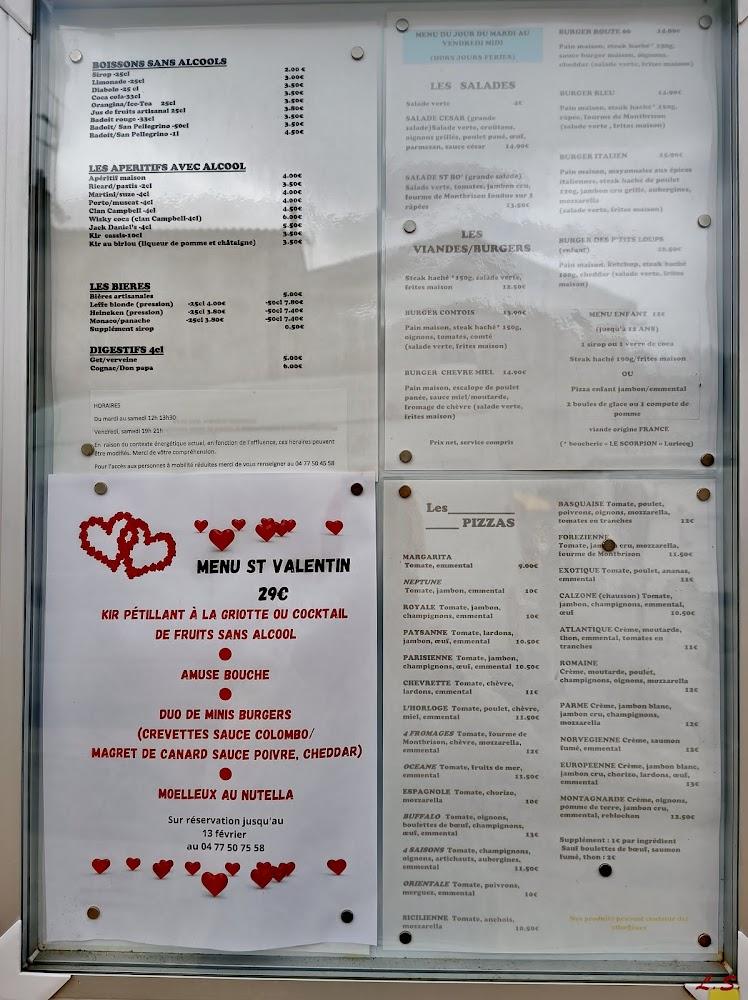 BOISSONS SANS ALCOOLS
Sirop -25cl 2.00 €
Limonade -25cl 3.00€
Diabolo -25 cl 3.50€
Coca cola-33cl 3.50€
Orangina/Ice-Tea 25cl 3.50€
Jus de fruits artisanal 25cl 3.80€
Badoit rouge -33cl 3.50€
Badoit/ San Pellegrino -50cl 3.50€
Badoit/San Pellegrino -1l 4.50€
LES APERITIFS AVEC ALCOOL
Apéritif maison 4.00€
Ricard/pastis -2cl 3.50€
Martini/suze -4cl 4.00€
Porto/muscat -4cl 4.00€
Clan Campbell -4cl 4.50€
Wisky coca (clan Campbell-4cl) 6.00€
Jack Daniel's -4cl 5.50€
Kir cassis-10cl 3.50€
Kir au birlou (liqueur de pomme et châtaigne) 3.50€
LES BIERES
Bières artisanales 5.00€
Leffe blonde (pression) -25cl 4.00€ -50cl 7.80€
Heineken (pression) -25cl 3.80€ -50cl 7.40€
Monaco/panache -25cl 3.80€ -50cl 7.40€
Supplément sirop 0.50€
DIGESTIFS 4cl
Get/verveine 5.00€
Cognac/Don papa 6.00€
HORAIRES
Du mardi au samedi 12h 13h30
Vendredi, samedi 19h 21h
En raison du contexte énergétique actuel, en fonction de l'affluence, ces horaires peuvent
être modifiés. Merci de vôtre compréhension.
Pour l'accès aux personnes à mobilité réduites merci de vous renseigner au 04 77 50 45 58
MENU DU JOUR DU MARDI AU
VENDREDI MIDI
(HORS JOURS FERIES)
LES SALADES
Salade verte 4€
SALADE CESAR (grande
salade)Salade verte, croûtons,
oignons grillés, poulet pané, œuf,
parmesan, sauce césar 14.90€
SALADE ST BO' (grande salade)
Salade verte, tomates, jambon cru,
fourme de Montbrison fondue sur 2
râpées 13.50€
LES
VIANDES/BURGERS
Steak haché *150g, salade verte,
frites maison 12.50€
BURGER COMTOIS 13.90€
Pain maison, steak haché* 150g,
oignons, tomates, comté
(salade verte, frites maison)
BURGER CHEVRE MIEL 14.90€
Pain maison, escalope de poulet
panée, sauce miel/moutarde,
fromage de chèvre (salade verte,
frites maison)
Prix net, service compris
BURGER ROUTE 66 14.90€
Pain maison, steak haché* 150g,
sauce burger maison, oignons,
cheddar (salade verte, frites maison)
BURGER BLEU 14.90€
Pain maison, steak haché* 150g,
râpée, fourme de Montbrison
(salade verte , frites maison)
BURGER ITALIEN 15.90€
Pain maison, mayonnaise aux épices
italiennes, steak haché de poulet
120g, jambon cru grillé, aubergines,
mozzarella
(salade verte, frites maison)
BURGER DES P'TITS LOUPS
(enfant) 10.50€
Pain maison, ketchup, steak haché
100g, cheddar (salade verte, frites
maison)
MENU ENFANT 12€
(jusqu'à 12 ANS)
1 sirop ou 1 verre de coca
Steak haché 100g/frites maison
OU
Pizza enfant jambon/emmental
2 boules de glace ou 1 compote de
pomme
viande origine FRANCE
(* boucherie « LE SCORPION » Luriecq)
MENU ST VALENTIN
29€
KIR PÉTILLANT À LA GRIOTTE OU COCKTAIL
DE FRUITS SANS ALCOOL
AMUSE BOUCHE
DUO DE MINIS BURGERS
(CREVETTES SAUCE COLOMBO/
MAGRET DE CANARD SAUCE POIVRE, CHEDDAR)
MOELLEUX AU NUTELLA
Sur réservation jusqu'au
13 février
au 04 77 50 75 58
Les________
____ PIZZAS
MARGARITA
Tomate, emmental 9.00€
NEPTUNE
Tomate, jambon, emmental 10€
ROYALE Tomate, jambon,
champignons, emmental 10€
PAYSANNE Tomate, lardons,
jambon, œuf, emmental 10.50€
PARISIENNE Tomate, jambon,
champignons, œuf, emmental 10.50€
CHEVRETTE Tomate, chèvre,
lardons, emmental 11€
L'HORLOGE Tomate, poulet, chèvre,
miel, emmental 11.50€
4 FROMAGES Tomate, fourme de
Montbrison, chèvre, mozzarella,
emmental 12€
OCEANE Tomate, fruits de mer,
emmental 13.50€
ESPAGNOLE Tomate, chorizo,
mozzarella 10€
BUFFALO Tomate, oignons,
boulettes de bœuf, champignons,
œuf, emmental 13€
4 SAISONS Tomate, champignons,
oignons, artichauts, aubergines,
emmental 11.50€
ORIENTALE Tomate, poivrons,
merguez, emmental 10€
SICILIENNE Tomate, anchois,
mozzarella 10.50€
BASQUAISE Tomate, poulet,
poivrons, oignons, mozzarella,
tomates en tranches 12€
FOREZIENNE
Tomate, jambon cru, mozzarella,
fourme de Montbrison 11.50€
EXOTIQUE Tomate, poulet, ananas,
emmental 11€
CALZONE (chausson) Tomate,
jambon, champignons, emmental,
œuf 10.50€
ATLANTIQUE Crème, moutarde,
thon, emmental, tomates en
tranches 11€
ROMAINE
Crème, moutarde, poulet,
champignons, oignons, mozzarella
12€
PARME Crème, jambon blanc,
jambon cru, champignons,
mozzarella 12€
NORVEGIENNE Crème, saumon
fumé, emmental 12€
EUROPEENNE Crème, jambon blanc,
jambon cru, chorizo, lardons, œuf,
emmental 13€
MONTAGNARDE Crème, oignons,
pomme de terre, jambon cru,
emmental, reblochon 12.50€
Supplément : 1€ par ingrédient
Sauf boulettes de bœuf, saumon
fumé, thon : 2€
Nos produits peuvent contenir des
allergènes
L.S.